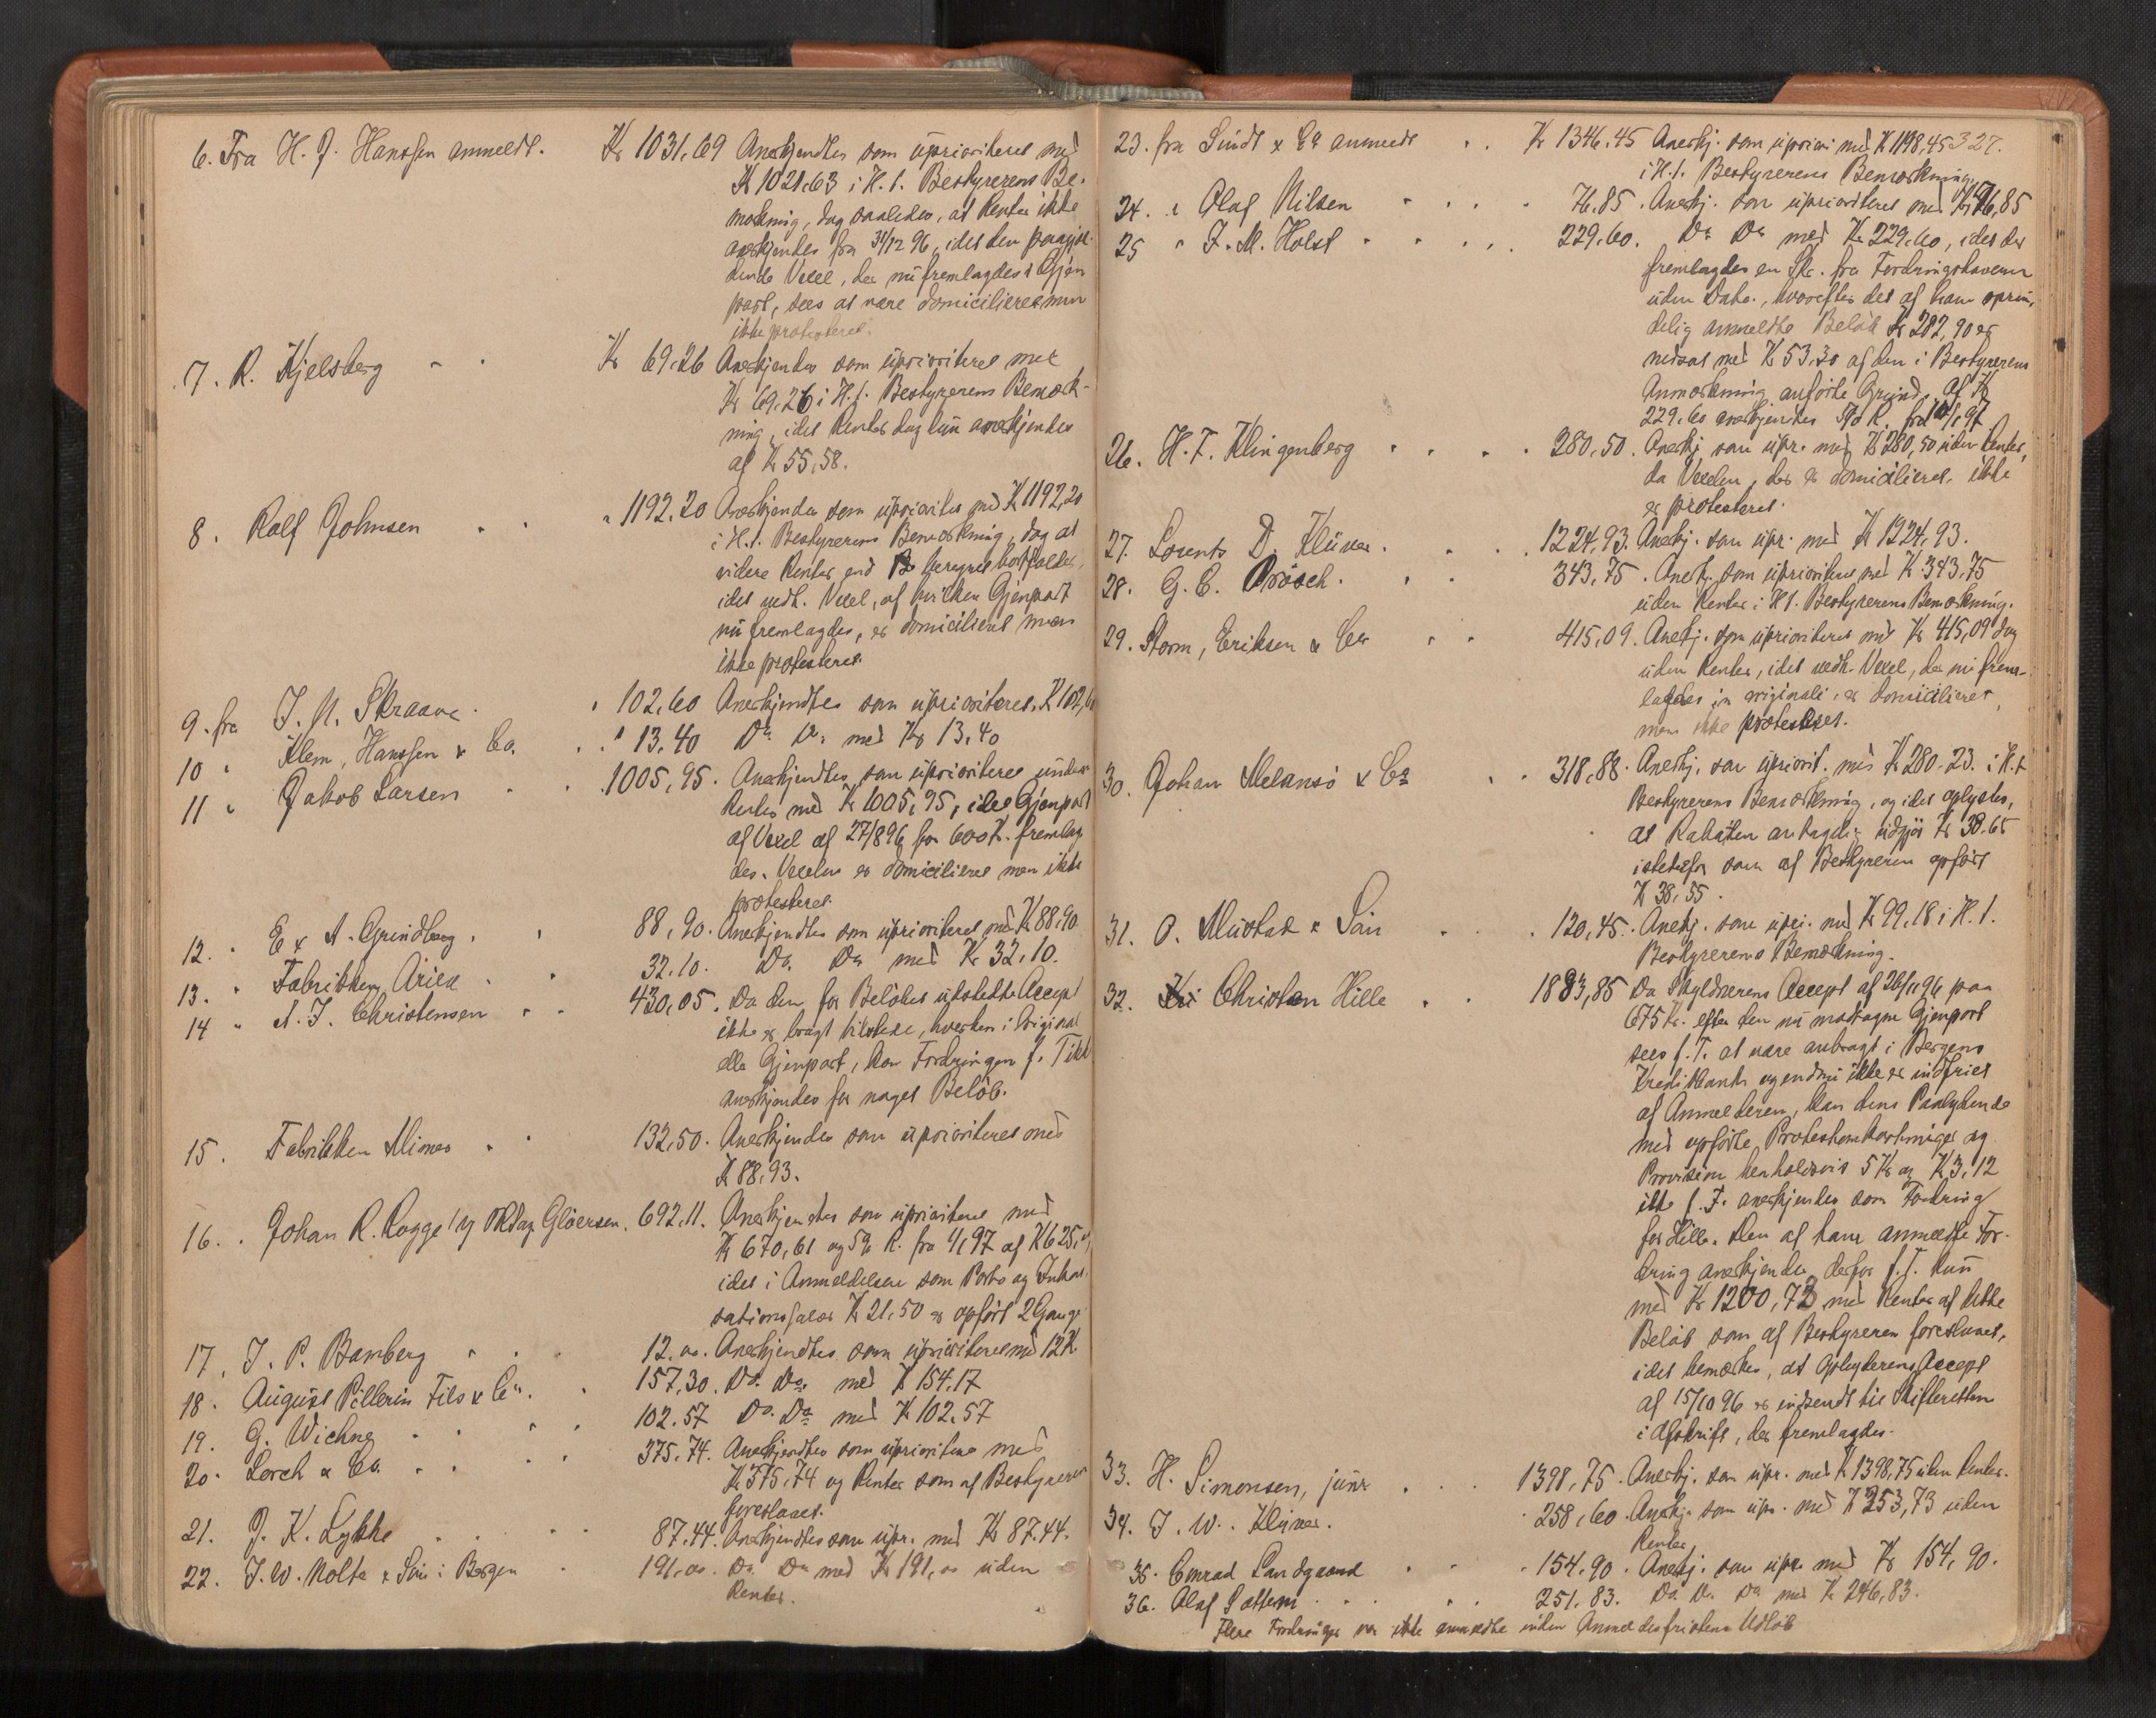 6. Fra H. J. Hanssen anmeldt. Kr 1031,69 Anerkjendtes som uprioriteret med
Kr 1021,63 i H. t. Bestyrerens Be-
mærkning, dog saaledes, at Renter ikke
anerkjendes fra 31/12 96, idet den paagjæl-
dende Vexel, der nu fremlagdes i Gjen
part, sees at være domicilieret men
ikke protesteret.
7. R. Kjelsberg " " Kr 69,26 Anerkjendes som uprioriteret med
Kr 69,26 i H. t. Bestyrerens Bemærk-
ning, idet Renter dog kun anerkjendes
af Kr 55,58.
8. Rolf Johnsen " " " 1192.20 Anerkjendes som uprioritet med Kr 1192,20
i H. t. Bestyrerens Bemærkning, dog at
videre Renter end beregnet bortfalder,
idet vedk. Vexel, af hvilken Gjenpart
nu fremlagdes, er domicilieret men
ikke protesteret.
9. fra J. N. Skraave " 102,60 Anerkjendtes som uprioriteret, Kr 102,60
10 " Klem, Hanssen & Co. " " 13,40 Do Do med Kr 13,40
11 " Jakob Larsen " " 1005,95. Anerkjendtes som uprioriteret uden
Renter med Kr 1005,95, idet Gjenpart
af Vexel af 27/8 96 for 600 Kr. fremlag
des. Vexelen er domicilieret men ikke
protesteret.
12. " E & A. Grindberg " " 88,90. Anerkjendtes som uprioriteret med Kr 88,90
13. " Fabrikken Ariel " " 32.10. Do. Do med Kr 32,10.
14 " A. J. Christensen " " 430,05. Da den for Beløbet udstedte Accept
ikke er bragt tilstede, hverken i Original
eller Gjenpart, kan Fordringen f. Tiden
anerkjendes for noget Beløb.
15. Fabrikken Mimer " " 132,50. Anerkjendes som uprioriteret med
Kr 88,93.
16. . Johan R. Rogge v/ O Rsag. Gløersen. 692,11. Anerkjendtes som uprioriteret med
Kr 670,61 og 5% R. fra 4/1 97 af Kr 625,
idet i Anmeldelsen som Porto og Inkas-
sationssalær Kr 21,50 er opført 2 Gange
17. J. P. Bamberg " " " 12.00. Anerkjendtes som uprioriteret med 12 Kr
18. August Pellerin Fils & Co. " 157,30. Do. Do. med Kr 154,17
19. G. Wichne " " " 102.57 Do. Do med Kr 102.57
20. Lorch & Co. " " " 375.74. Anerkjendtes som uprioriteret med
Kr 375,74 og Renter som af Bestyreren
foreslaaet.
21. J. K. Lykke " " " 87.44. Anerkjendtes som upr. med Kr 87.44.
22. J. W. Molte & Søn i Bergen " 191,00. Do. Do med Kr 191,00 uden
Renter.
327.
23. fra Lindt & Co anmeldt " " Kr 1346.45 Anerkj. som upriori med Kr 1198,45
i H. t. Bestyrerens Bemærkning.
24. " Olaf Nilsen " " " 76.85. Anerkj. som uprioriteret med Kr 76,85
25 " F. M. Holst " " " 229.60. Do Do med Kr 229,60, idet der
fremlagdes en Skr. fra Fordringshaveren
uden Dato, hvorefter det af ham oprin-
delig anmeldte Beløb Kr 282,90 er
nedsat med Kr 53.30 af den i Bestyrerens
Anmærkning anførte Grund. Af Kr
229,60 anerkjendtes 5% R. fra 14/1 97
26. H. F. Klingenberg " " " 280,50. Anerkj. som upr. med Kr 280,50 uden Renter,
da Vexelen, der er domicilieret, ikke
er protesteret.
27. Lorents D. Klüver " " 1224,93. Anerkj. som upr. med Kr 1224,93.
28. G. C. Brösch. " " 343,75. Anerkj. som uprioriteret med Kr 343,75
uden Renter i H t. Bestyrerens Bemærkning.
29. Storm, Eriksen & Co " " 415,09. Anerkj. som uprioriteret med Kr 415,09 dog
uden Renter, idet vedk. Vexel, der nu frem-
lagdes in originali, er domicilieret,
men ikke protesteret.
30. Johan Melansø & Co " " 318,88. Anerkj. som upriorit. med Kr 280.23. i H. t
Bestyrerens Bemærkning, og idet oplystes,
at Rabatten antagelig udgjør Kr 38.65
istedetfor som af Bestyreren opført
Kr 38,55.
31. O. Mustad & Søn " " 120,45. Anerkj. som upri. med Kr 99,18 i H. t.
Bestyrerens Bemærkning.
32. Christen Hille " " 1883,85 Da Skyldnerens Accept af 26/11 96 paa
675 Kr. efter den nu modtagne Gjenpart
sees f. T. at være anbragt i Bergens
Kreditbank og endnu ikke er indfriet
af Anmelderen, kan dens Paalydende
med opførte Protestomkostninger og
Provision henholdsvis 5 Kr og Kr 3,12
ikke f. T. anerkjendes som Fordring
for Hille. Den af ham anmeldte For-
dring anerkjendes derfor f. T. kun
med Kr 1200,73 med Renter af dette
Beløb som af Bestyreren foreslaaet,
idet bemærkes, at Opbyderens Accept
af 15/10 96 er indsendt til Skifteretten
i Afskrift, der fremlagdes.
33. H. Simonsen, junr " " 1398,75. Anerkj. som upr. med Kr 1398,75 uden Renter.
34. J. W. Klüver. " 258,60. Anerkj. som upr. med Kr 253,73 uden
Renter
35. Conrad Landgaard " " 154.90. Anerkj. som upr. med Kr 154,90.
36. Olaf Sættem " " " 251.83. Do. Do. Do med Kr 246,83.
Flere Fordringer var ikke anmeldte inden Anmeldesfristens Udløb